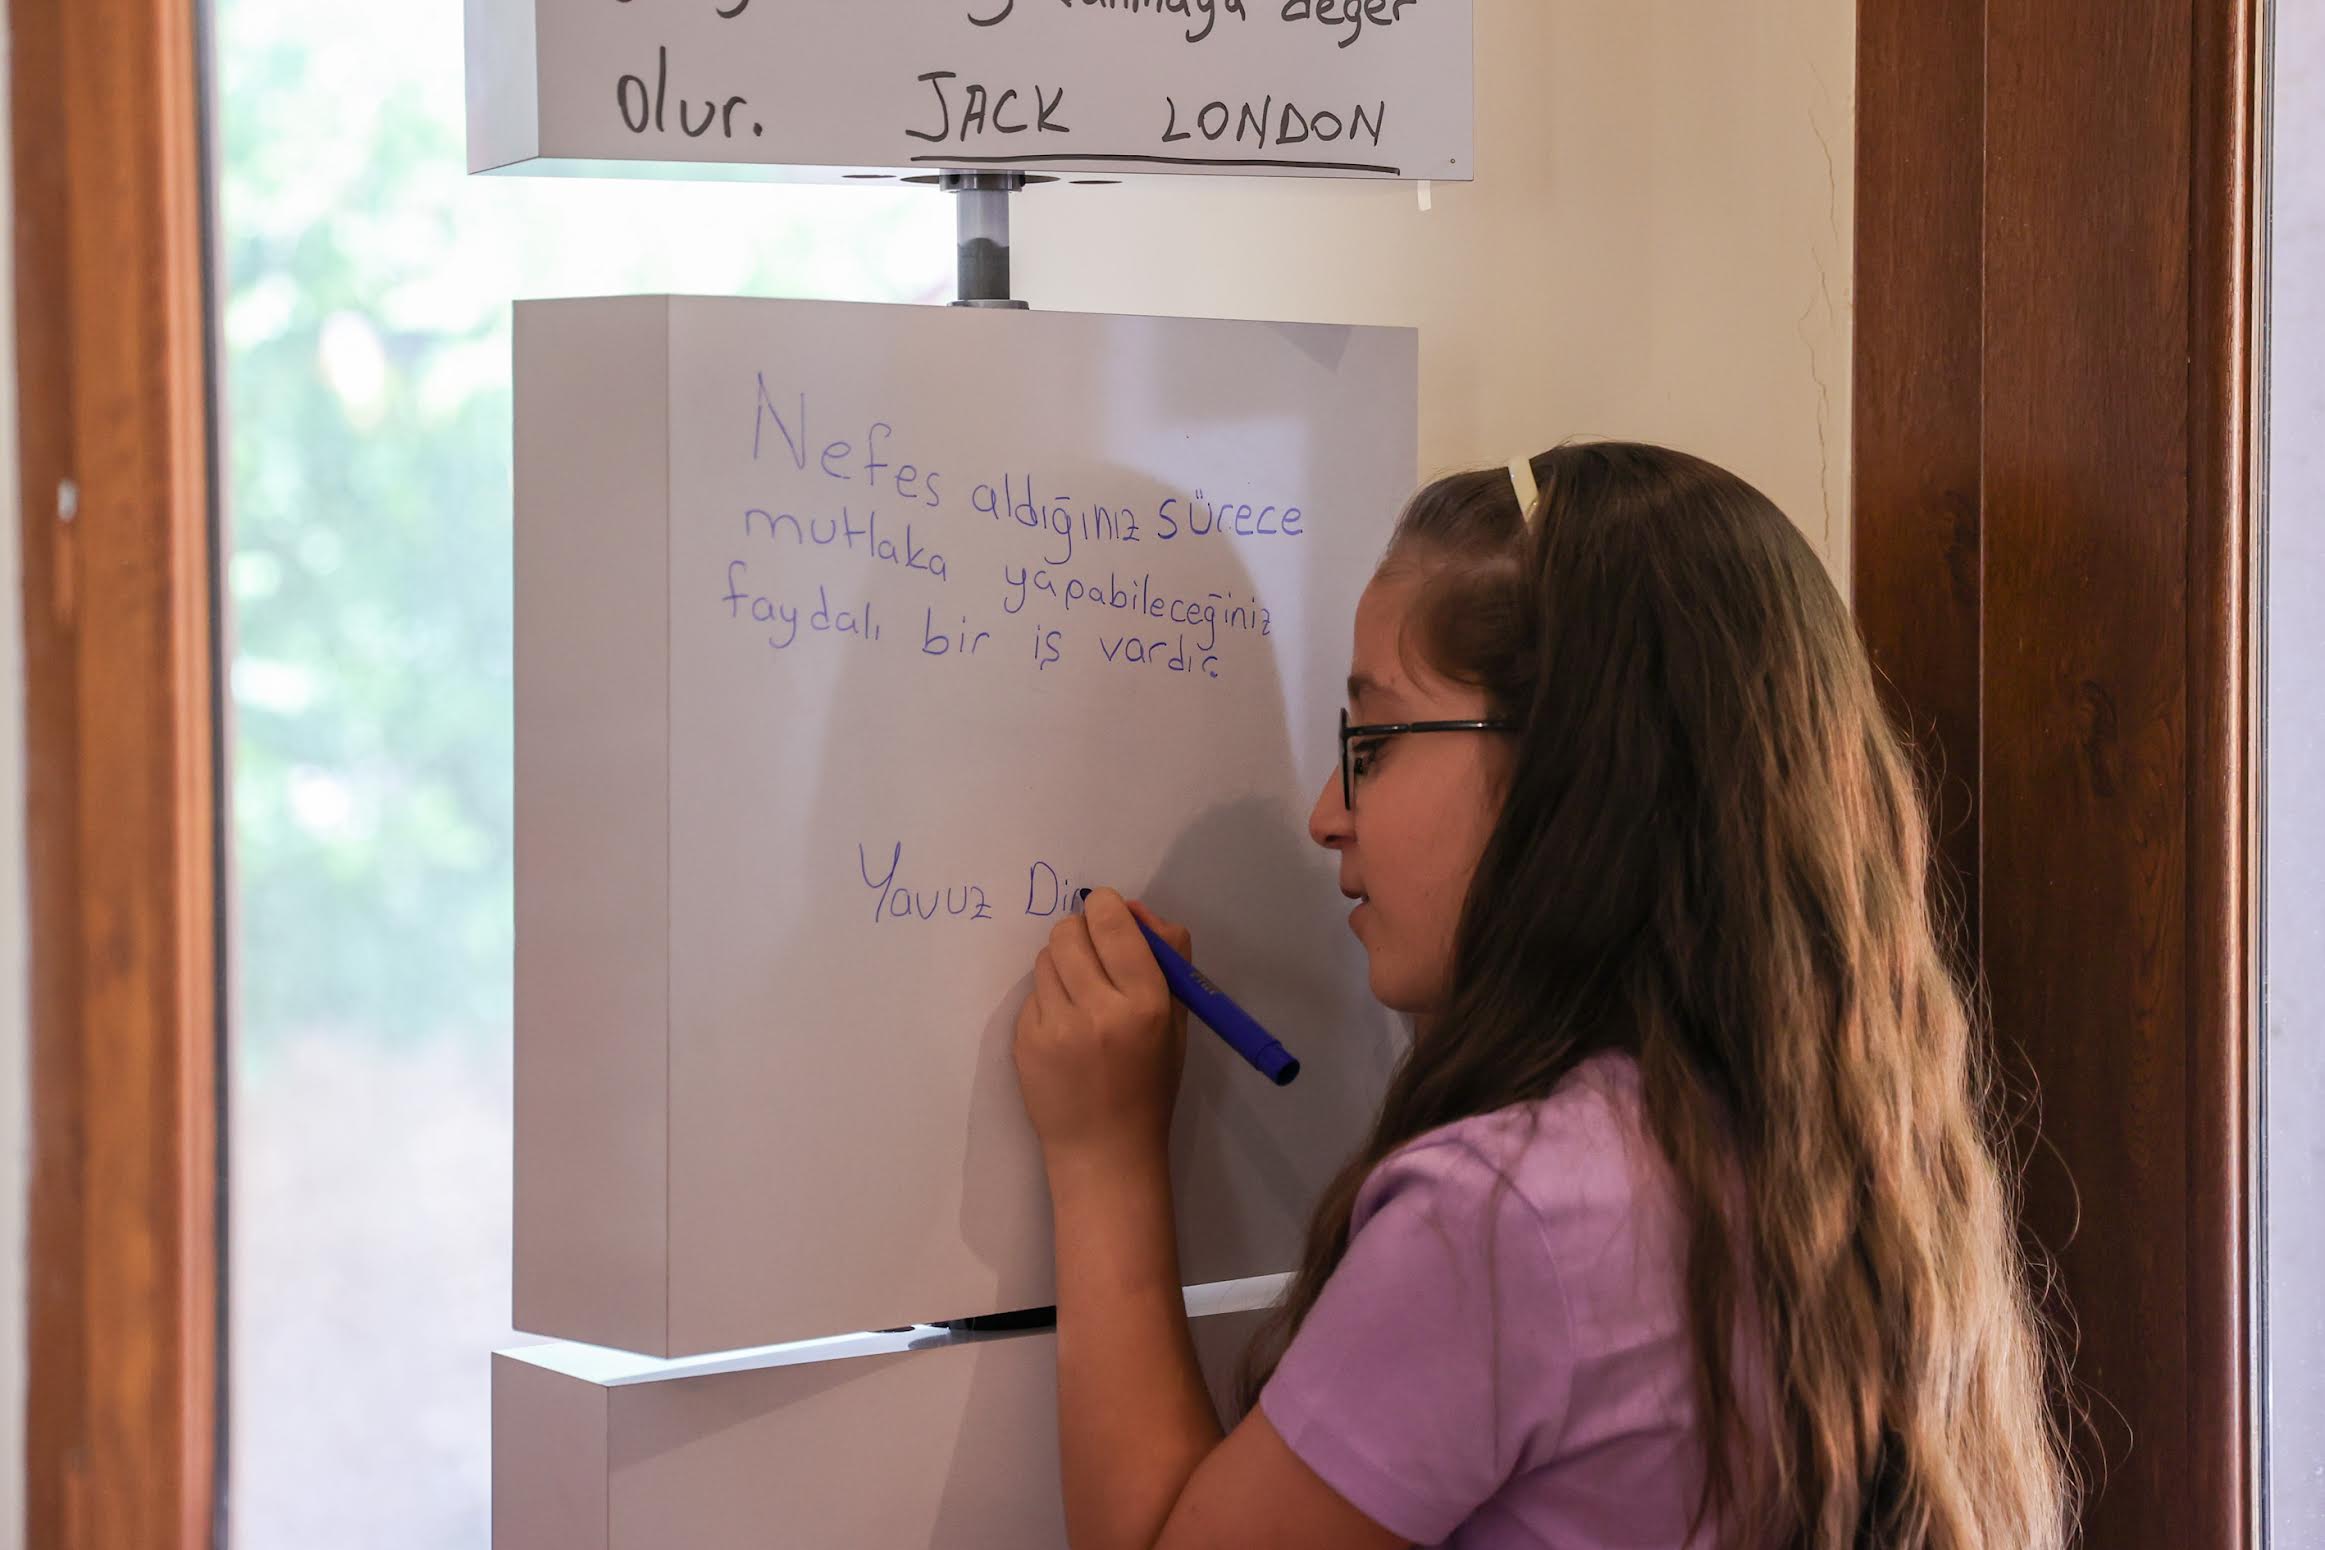 değer
olur. JACK LONDON
Nefes aldığınız sürece
mutlaka yapabileceğiniz
faydalı bir iş vardır.
Yavuz